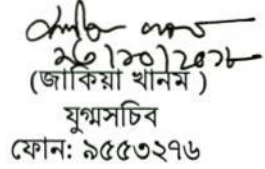 ২৩/১০/২০১৮
(জাকিয়া খানম )
যুগ্মসচিব
ফোন: ৯৫৫৩২৭৬